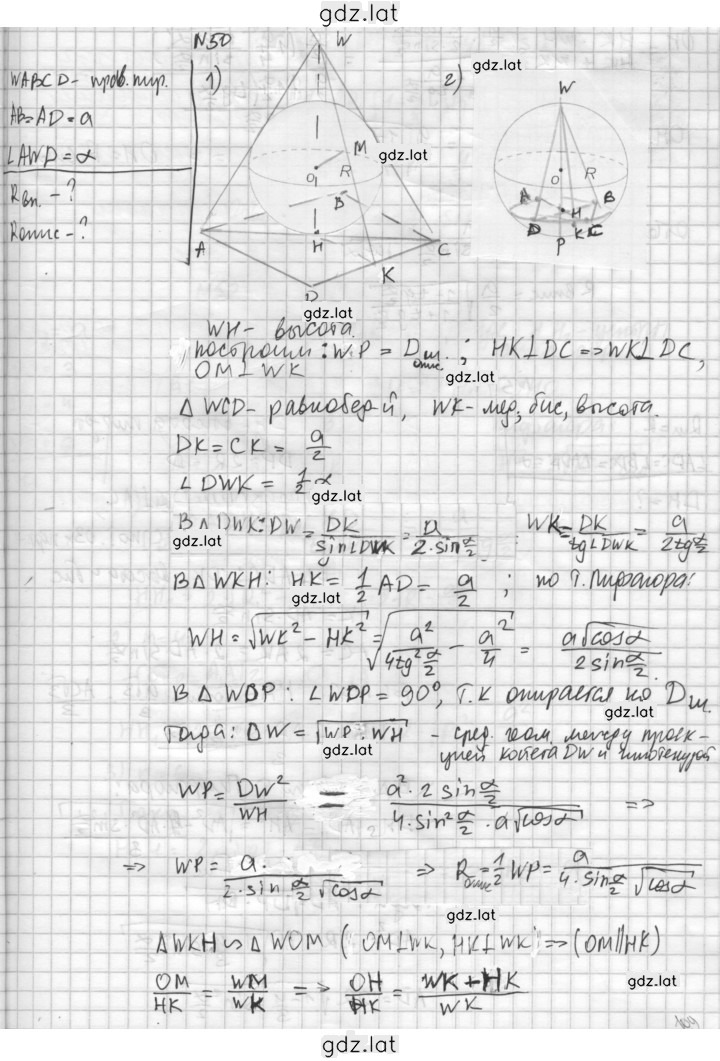 gdz.lat
N50
WABCD - прав. пир.
AB=AD=a
∠AWD=α
Rвп. - ?
Rопис - ?
1)
W
M
O
R
B
A
H
C
K
D
gdz.lat
gdz.lat
2)
gdz.lat
W
O
R
A
B
H
D
K C
P
WH - высота.
построим: WP = Dш. опис. ; HK⊥DC => WK⊥DC,
OM⊥WK
gdz.lat
△WCD - равнобед-й, WK - мед, бис, высота.
gdz.lat
DK=CK= a/2
∠DWK = 1/2 α
gdz.lat
В △DWK: DW = DK/sin∠DWK = a/2·sin α/2 WK = DK/tg∠DWK = a/2tg α/2
gdz.lat
gdz.lat
В △WKH: HK = 1/2 AD = a/2 ; по т. Пифагора:
gdz.lat
WH = √WK² - HK² = √a²/4tg² α/2 - a²/4 = a√cosα/2 sin α/2
gdz.lat
В △WDP: ∠WDP = 90°, т.к опирается на Dш.
gdz.lat
тогда: DW = √WP·WH - сред. геом. между проек-
цией катета DW и гипотенузой
gdz.lat
WP = DW²/WH = a²·2 sin α/2 / 4·sin² α/2 · a√cosα =>
gdz.lat
=> WP = a·/2·sin α/2 √cosα => Rопис = 1/2 WP = a/4·sin α/2 √cosα
gdz.lat
△WKH ∽ △WOM ( OM⊥WK, HK⊥WK ) => (OM∥HK)
OM/HK = WM/WK => OH/HK = WK+HK/WK
gdz.lat
gdz.lat
gdz.lat